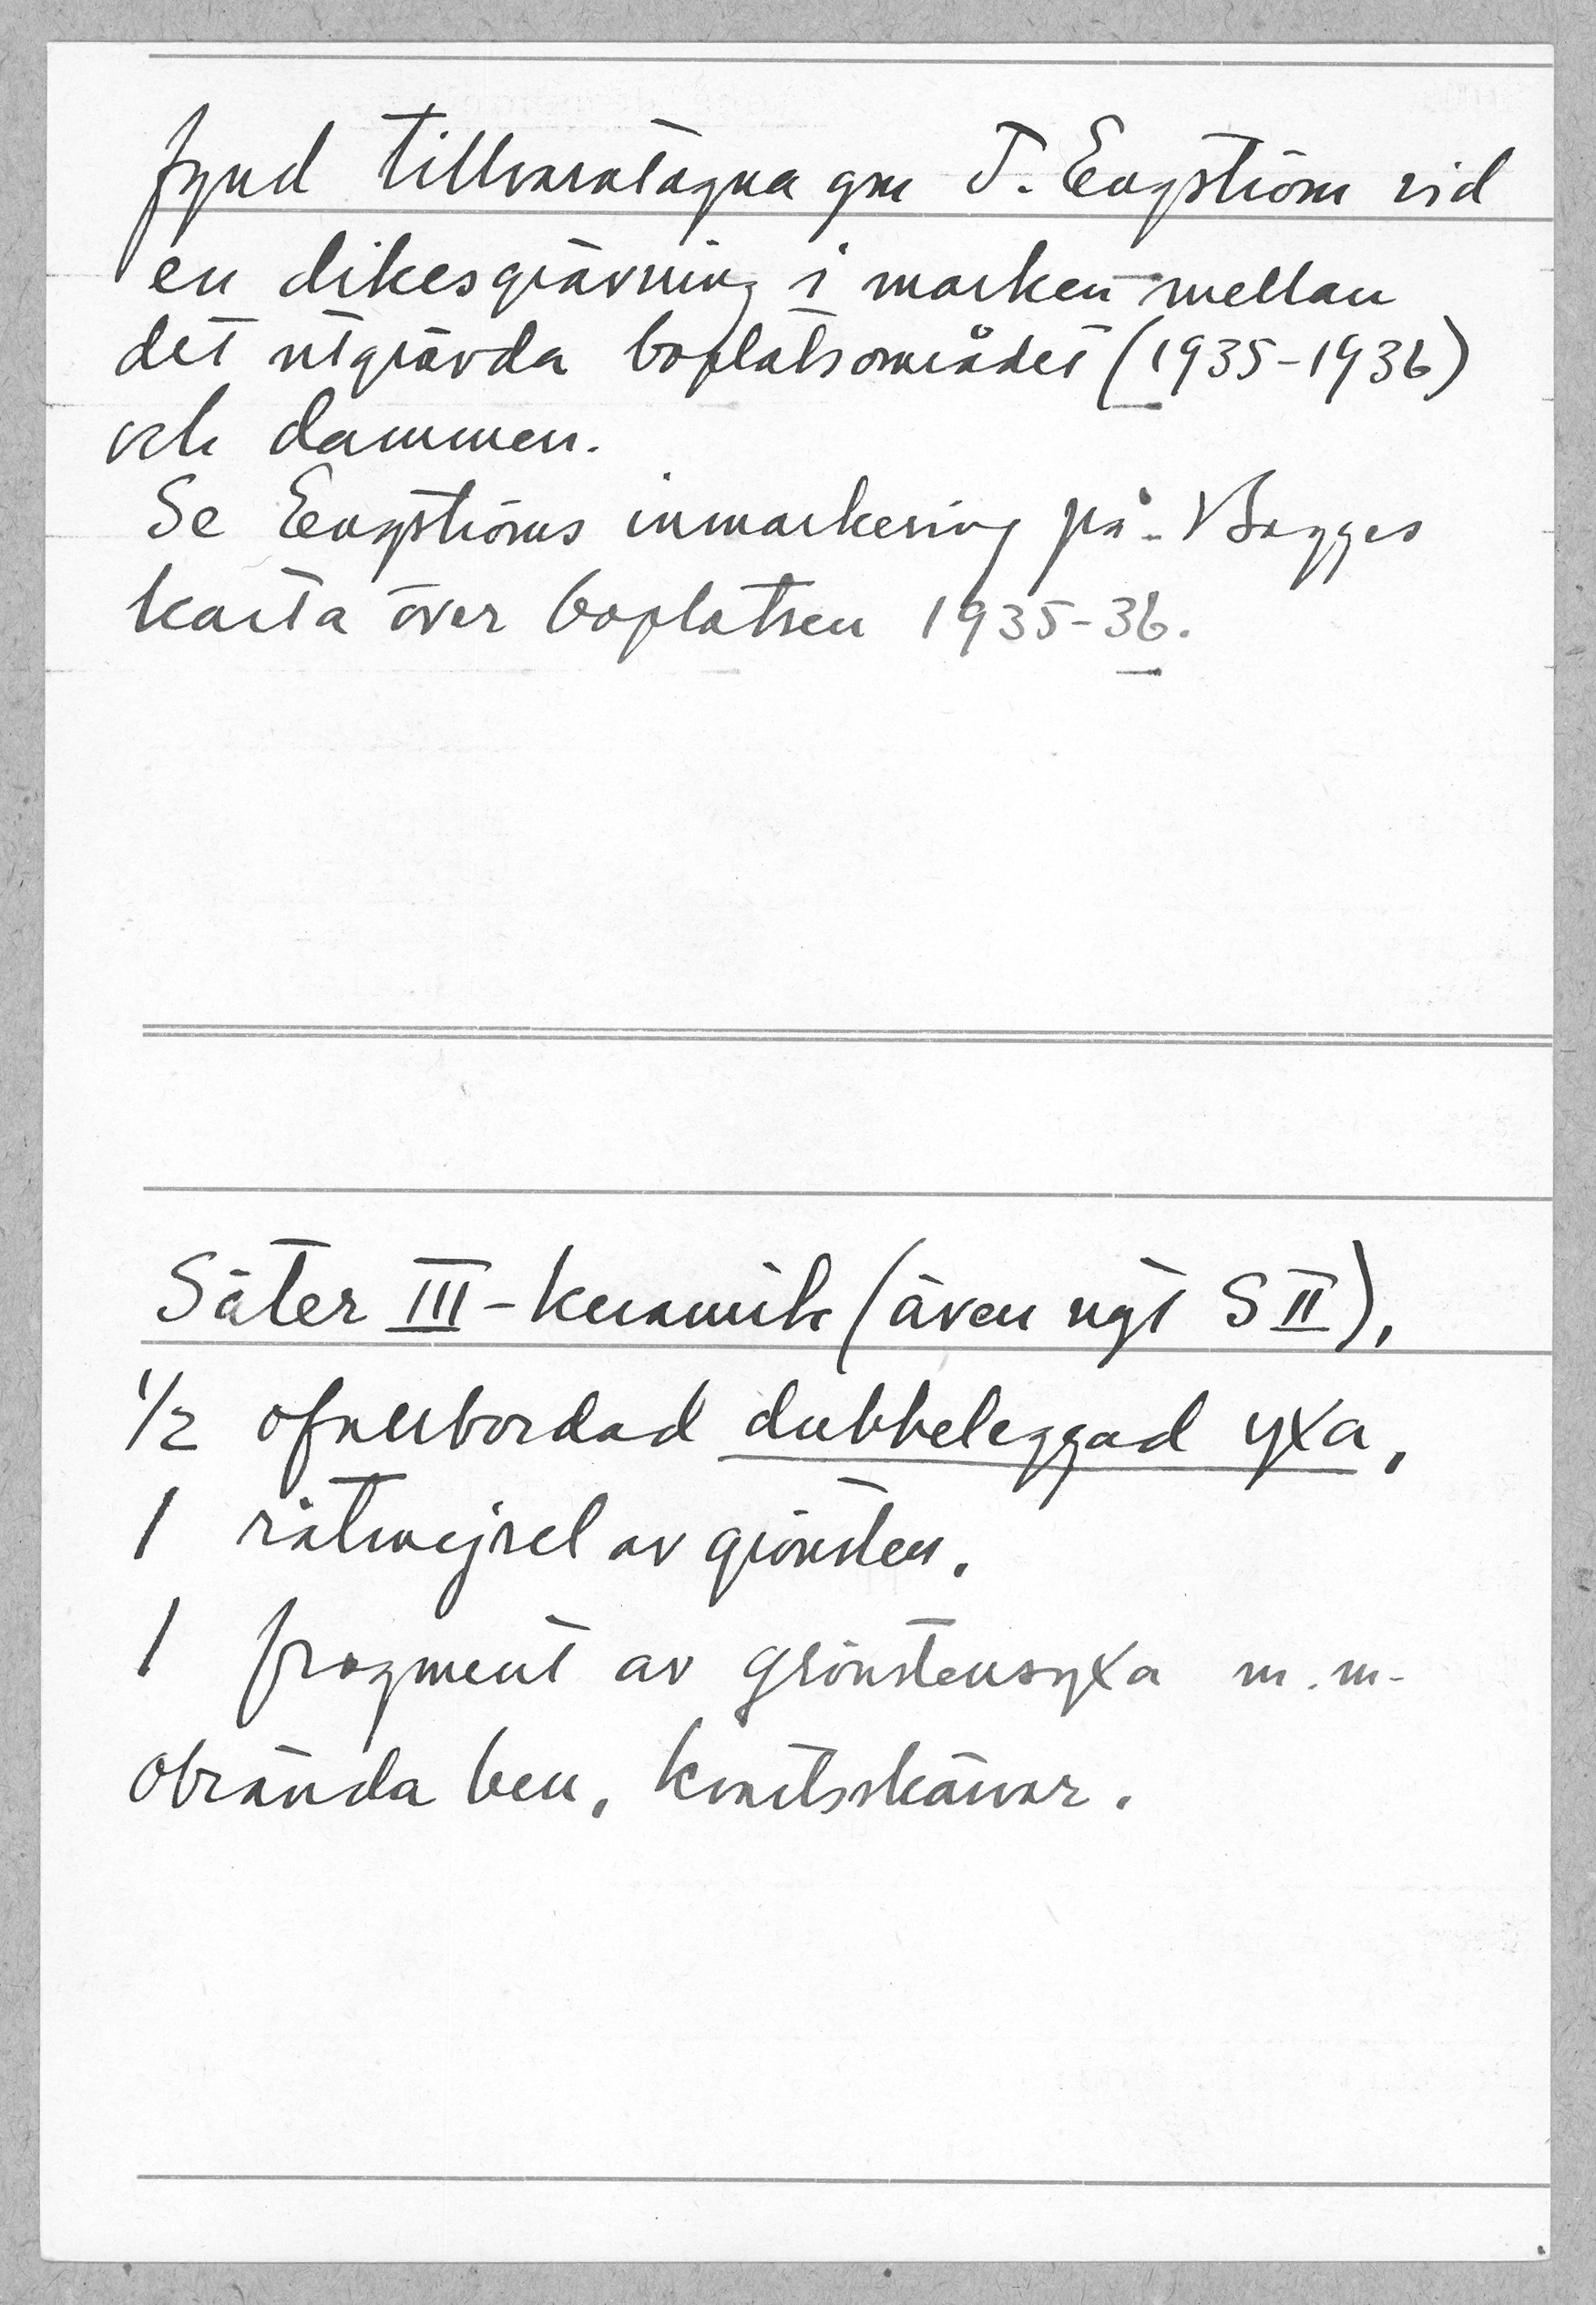 fynd tillvaratagna gm T. Engström vid
en dikesgrävning i marken mellan
det utgrävda boplatsområdet (1935-1936)
och dammen.
Se Engströms inmarkering på Bagges
karta över boplatsen 1935-36.
Säter III-keramik (även ngt S II),
1/2 ofullbordad dubbeleggad yxa,
1 rätmejsel av grönsten.
1 fragment av grönstensyxa m.m.
Obrända ben, kvartsskärvor.